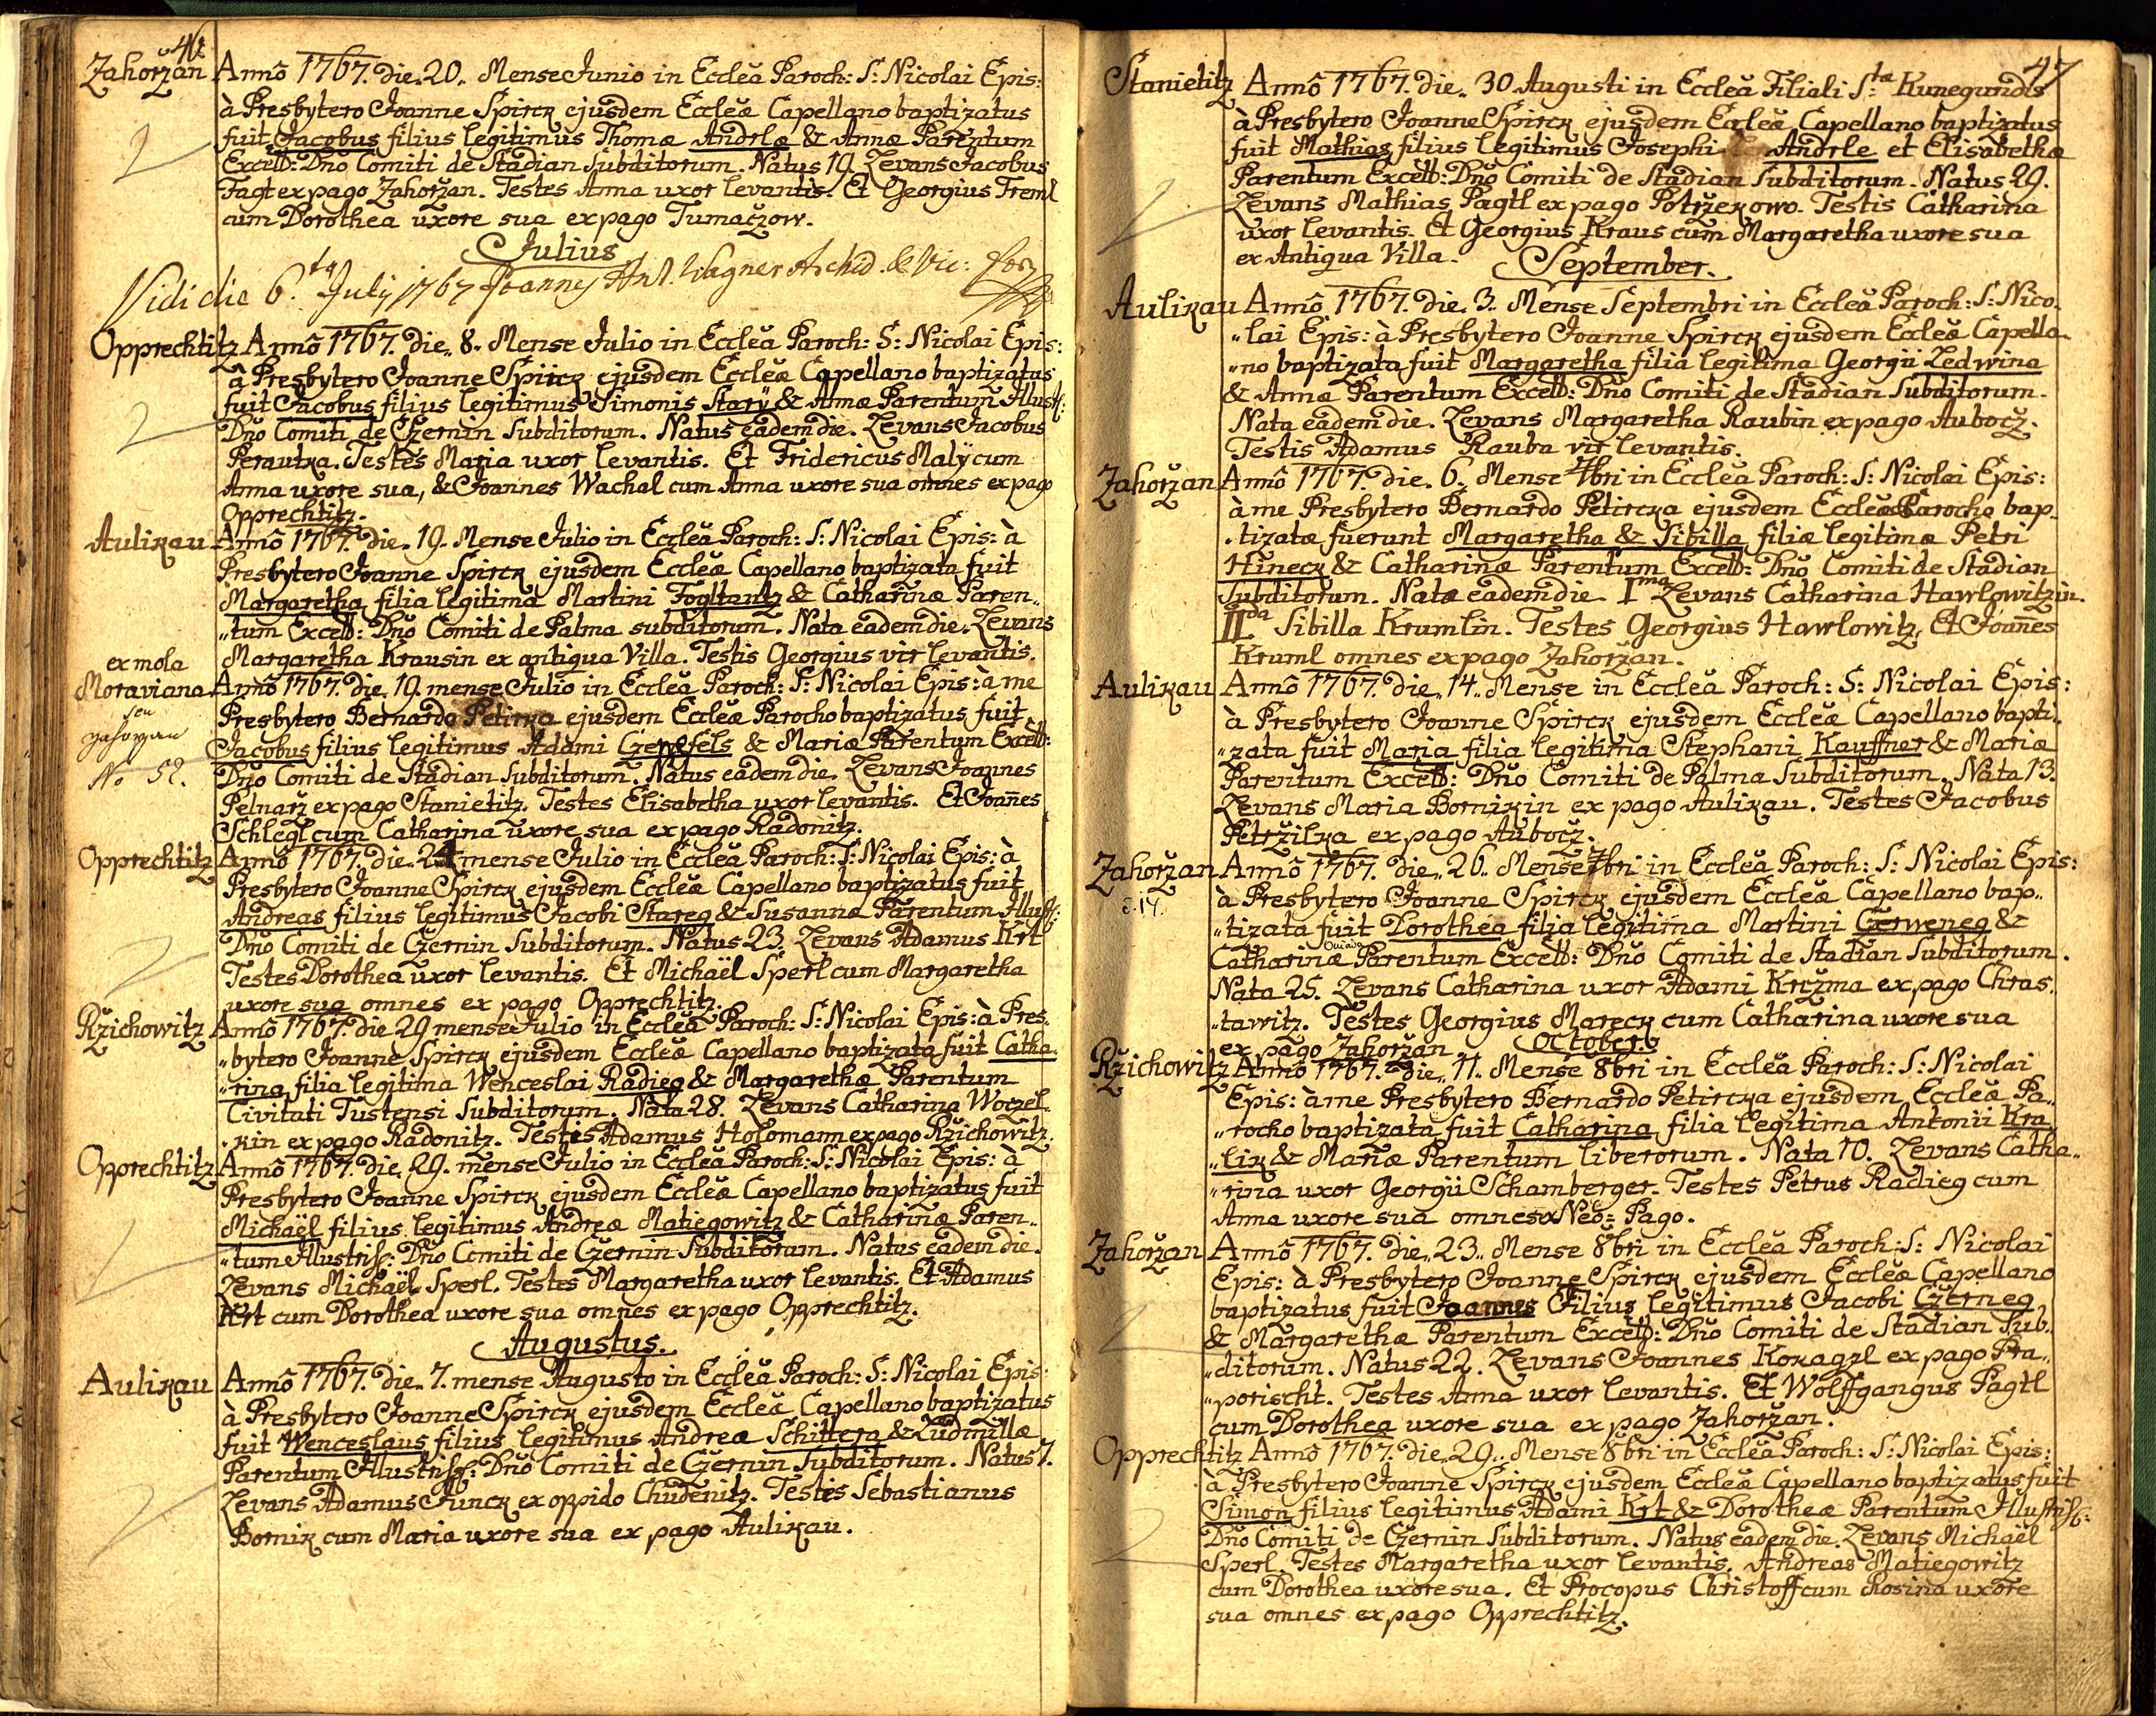 46
Zahoržan Annô 1767. die. 20. Mense Junio in Eccleâ Paroch: S: Nicolai Epis:
à Presbytero Joanne Spirck ejusdem Eccleæ Capellano baptizatus
fuit Jacobus filius legitimus Thomæ Andrlæ & Annæ Parentum
Excell: Dño Comiti de Stadian Subditorum. Natus 19. Levans Jacobus
Pagt ex pago Zahoržan. Testes Anna uxor levantis. Et Georgius Treml
cum Dorothea uxore sua ex pago Tumaczow.
Julius
Vidi die 6ta July 1767 Joannes Ant. Wagner Archid. & Vic: For
Opprechtitz Annô 1767. die. 8. Mense Julio in Eccleâ Paroch: S: Nicolai Epis:
à Presbytero Joanne Spirck ejusdem Eccleæ Capellano baptizatus
fuit Jacobus filius legitimus Simonis Starÿ & Annæ Parentum Illust:
Dño Comiti de Czernin Subditorum. Natus eadem die. Levans Jacobus
Perautka. Testes Maria uxor levantis. Et Fridericus Malÿ cum
Anna uxore sua, & Joannes Wachal cum Anna uxore sua omnes ex pago
Opprechtitz.
Aulikau Annô 1767. die. 19. Mense Julio in Eccleâ Paroch: S: Nicolai Epis: à
Presbytero Joanne Spirck ejusdem Eccleæ Capellano baptizata fuit
Margaretha filia legitima Martini Fogltantz & Catharinæ Paren„
„tum Excell: Dño Comiti de Palma subditorum. Nata eadem die. Levans
Margaretha Krausin ex antiqua Villa. Testis Georgius vir levantis.
ex mola
Moraviana Annô 1767. die. 19. mense Julio in Eccleâ Paroch: S: Nicolai Epis: à me
seu
Presbytero Bernardo Petirka ejusdem Eccleæ Parocho baptizatus fuit
Jacobus filius legitimus Adami Czerwfels & Mariæ Parentum Excell:
No 52. Dño Comiti de Stadian Subditorum. Natus eadem die. Levans Joannes
Pelnarž ex pago Stanietitz. Testes Elisabetha uxor levantis. Et Joanes
Schlegl cum Catharina uxore sua ex pago Radonitz.
Opprechtitz Annô 1767. die. 24 mense Julio in Eccleâ Paroch: S: Nicolai Epis: à
Presbytero Joanne Spirck ejusdem Eccleæ Capellano baptizatus fuit
Andreas filius legitimus Jacobi Stareg & Susannæ Parentum Illust:
Dño Comiti de Czernin Subditorum. Natus 23. Levans Adamus Krt
Testes Dorothea uxor levantis. Et Michaël Sperl cum Margaretha
uxore sua omnes ex pago Opprechtitz.
Ržichowitz Annô 1767. die 29 mense Julio in Eccleâ Paroch: S: Nicolai Epis: à Pres„
„bytero Joanne Spirck ejusdem Eccleæ Capellano baptizata fuit Catha„
„rina filia legitima Wenceslai Radieg & Margarethæ Parentum
Civitati Tustensi Subditorum. Nata 28. Levans Catharina Woczel„
„kin ex pago Radonitz. Testis Adamus Holomann ex pago Ržichowitz.
Opprechtitz Annô 1767. die. 29. mense Julio in Eccleâ Paroch: S: Nicolai Epis: à
Presbytero Joanne Spirck ejusdem Eccleæ Capellano baptizatus fuit
Michaël filius legitimus Andreæ Matiegowitz & Catharinæ Paren„
„tum Illustriss: Dño Comiti de Czernin Subditorum. Natus eadem die.
Levans Michaël Sperl. Testes Margaretha uxor levantis. Et Adamus
Krt cum Dorothea uxore sua omnes ex pago Opprechtitz.
Augustus.
Aulikau Annô 1767. die. 7. mense Augusto in Eccleâ Paroch: S: Nicolai Epis:
à Presbytero Joanne Spirck ejusdem Eccleæ Capellano baptizatus
fuit Wenceslaus filius legitimus Andreæ Schittera & Ludmillæ
Parentum Illustriss: Dño Comiti de Czernin Subditorum. Natus 7.
Levans Adamus Junck ex oppido Chudenitz. Testes Sebastianus
Bornik cum Maria uxore sua ex pago Aulikau.
47
Stanietitz Annô 1767. die. 30. Augusti in Eccleâ Filiali S:ta Kunegundis
à Presbytero Joanne Spirck ejusdem Eccleæ Capellano baptizatus
fuit Mathias filius legitimus Josephi Andrle et Elisabethæ
Parentum Excell: Dño Comiti de Stadian Subditorum. Natus 29.
Levans Mathias Pagtl ex pago Potržekowo. Testis Catharina
uxor levantis. Et Georgius Kraus cum Margaretha uxore sua
ex Antiqua Villa.
September.
Aulikau Annô 1767. die. 3. Mense Septembri in Eccleâ Paroch: S: Nico„
„lai Epis: à Presbytero Joanne Spirck ejusdem Eccleæ Capella„
„no baptizata fuit Margaretha filia legitima Georgii Ledwina
& Annæ Parentum Excell: Dño Comiti de Stadian Subditorum.
Nata eadem die. Levans Margaretha Raubin ex pago Aubocž.
Testis Adamus Rauba vir levantis.
Zahoržan Annô 1767. die. 6. Mense 7bri in Eccleâ Paroch: S: Nicolai Epis:
à me Presbytero Bernardo Petircka ejusdem Eccleæ Parocho bap„
„tizatæ fuerunt Margaretha & Sibilla filiæ legitimæ Petri
Hineck & Catharinæ Parentum Excell: Dño Comiti de Stadian
Subditorum. Natæ eadem die. Ima Levans Catharina Hawlowitzin.
IIda Sibilla Krumlin. Testes Georgius Hawlowitz, Et Joanes
Kruml omnes ex pago Zahoržan.
Aulikau Annô 1767. die. 14. Mense in Eccleâ Paroch: S: Nicolai Epis:
à Presbytero Joanne Spirck ejusdem Eccleæ Capellano bapti„
„zata fuit Maria filia legitima Stephani Kauffner & Mariæ
Parentum Excell: Dño Comiti de Palma Subditorum. Nata 13.
Levans Maria Bornikin ex pago Aulikau. Testes Jacobus
Petržilka ex pago Aubocž.
Zahoržan Annô 1767. die. 26. Mense 7bri in Eccleâ Paroch: S: Nicolai Epis:
č. 14. à Presbytero Joanne Spirck ejusdem Eccleæ Capellano bap„
„tizata fuit Dorothea filia legitima Martini Czerweneg &
Catharinæ Parentum Excell: Dño Comiti de Stadian Subditorum.
Nata 25. Levans Catharina uxor Adami Kržma ex pago Chras„
„tawitz. Testes Georgius Mareck cum Catharina uxore sua
ex pago Zahoržan.
October
Ržichowitz Annô 1767. die. 11. Mense 8bri in Eccleâ Paroch: S: Nicolai
Epis: à me Presbytero Bernardo Petircka ejusdem Eccleæ Pa„
„rocho baptizata fuit Catharina filia legitima Antonii Kra„
„lik & Mariæ Parentum liberorum. Nata 10. Levans Catha„
„rina uxor Georgii Schamberger. Testes Petrus Radieg cum
Anna uxore sua omnes ex Neo= Pago.
Zahoržan Annô 1767. die. 23. Mense 8bri in Eccleâ Paroch: S: Nicolai
Epis: à Presbytero Joanne Spirck ejusdem Eccleæ Capellano
baptizatus fuit Joannes Filius legitimus Jacobi Czerneg
& Margarethæ Parentum Excell: Dño Comiti de Stadian Sub„
„ditorum. Natus 22. Levans Joannes Kokagzl ex pago Pra„
„porischt. Testes Anna uxor levantis. Et Wolffgangus Pagtl
cum Dorothea uxore sua ex pago Zahoržan.
Opprechtitz Annô 1767. die. 29. Mense 8bri in Eccleâ Paroch: S: Nicolai Epis:
à Presbytero Joanne Spirck ejusdem Eccleæ Capellano baptizatus fuit
Simon filius legitimus Adami Krt & Dorotheæ Parentum Illustriss:
Dño Comiti de Czernin Subditorum. Natus eadem die. Levans Michaël
Sperl. Testes Margaretha uxor levantis. Andreas Matiegowitz
cum Dorothea uxore sua. Et Procopus Christoff cum Rosina uxore
sua omnes ex pago Opprechtitz.